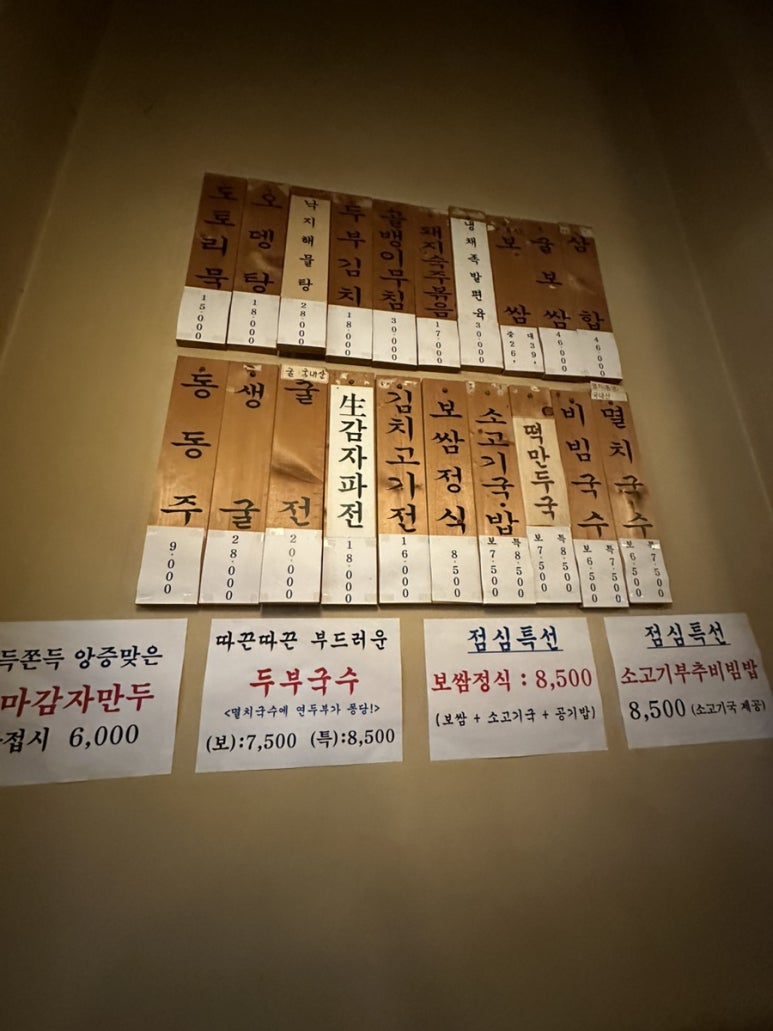 도토리묵 15·000
오뎅탕 18·000
낙지해물탕 28·000
두부김치 18·000
골뱅이무침 30·000
돼지숙주볶음 17·000
냉채족발편육 30·000
보쌈 중26, 대39,
굴보쌈 46·000
삼합 46·000
동동주 9·000
생굴 28·000
굴 국내산
굴전 20·000
生감자파전 18·000
김치고기전 16·000
보쌈정식 8·500
소고기국·밥 보7·500 특8·500
떡만두국 보7·500 특8·500
비빔국수 보6·500 특7·500
국내산
멸치국수 보6·500 특7·500
득쫀득 앙증맞은
마감자만두
접시 6,000
따끈따끈 부드러운
두부국수
<멸치국수에 연두부가 퐁당!>
(보):7,500 (특):8,500
점심특선
보쌈정식 : 8,500
(보쌈 + 소고기국 + 공기밥)
점심특선
소고기부추비빔밥
8,500 (소고기국 제공)